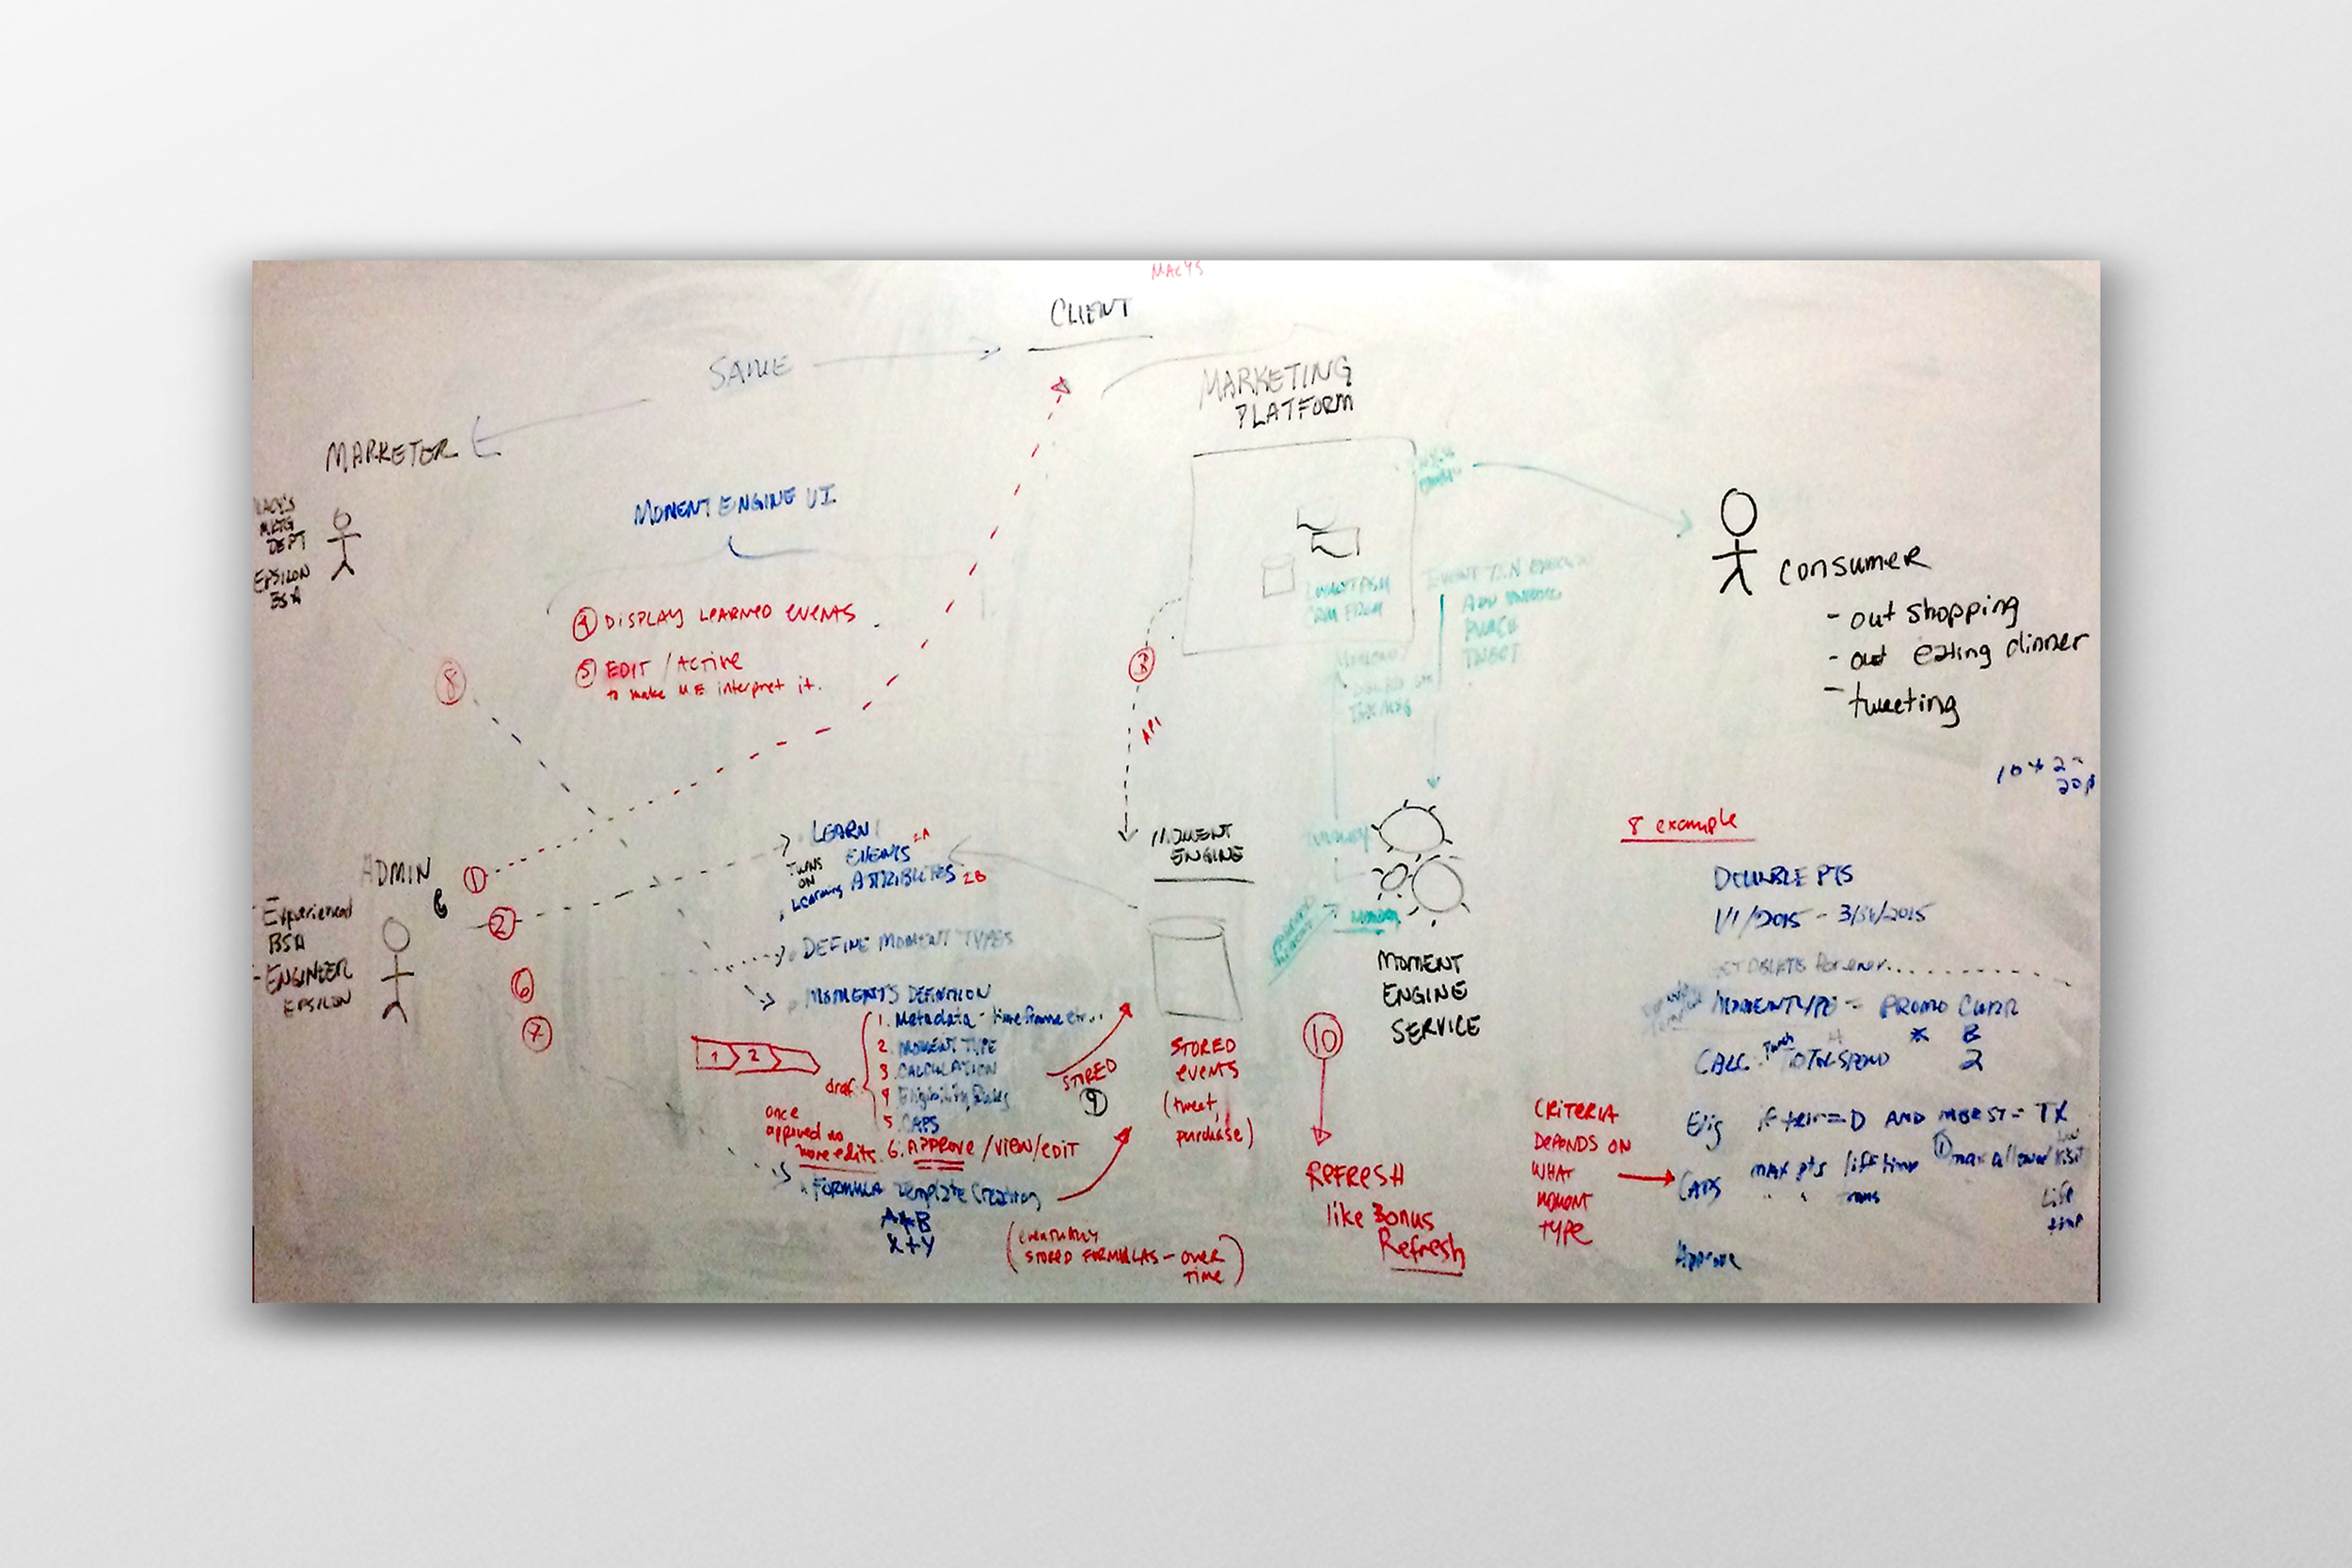 MACYS
CLIENT
SAME
MARKETING
PLATFORM
MARKETER
MACY'S
MKTG
DEPT
EPSILON
BSA
MOMENT ENGINE UI
④ DISPLAY LEARNED EVENTS
⑤ EDIT / ACTIVE
to make ME interpret it.
⑧
③
API
TWEET
CONSUMER
- out shopping
- out eating dinner
- tweeting
10 * 2 =
ADMIN
①
②
⑥
⑦
- Experienced
BSA
- ENGINEER
EPSILON
LEARN
EVENTS 2A
TURNS
ON
Learning ATTRIBUTES 2B
DEFINE MOMENT TYPES
MOMENTS DEFINITION
1. Metadata - timeframe etc...
2. MOMENT TYPE
3. CALCULATION
4 Eligibility Rules
5. CAPS
6. APPROVE / VIEW / EDIT
1 2
draft
once
approved no
more edits.
STORED
⑨
FORMULA Template Creation
A*B
X+Y
(eventually
STORED FORMULAS - over
time)
MOMENT
ENGINE
STORED
events
(tweet,
purchase)
MOMENT
ENGINE
SERVICE
⑩
REFRESH
like Bonus
Refresh
8 example
DOUBLE PTS
1/1/2015 - 3/31/2015
MOMENTTYPE = PROMO
* B
CALC: TOTALSPEND 2
Elig if tier = D AND MBR ST = TX
CRITERIA
DEPENDS ON
WHAT
MOMENT
TYPE
Caps max pts lifetime ① max allowed
Life
time
Approve